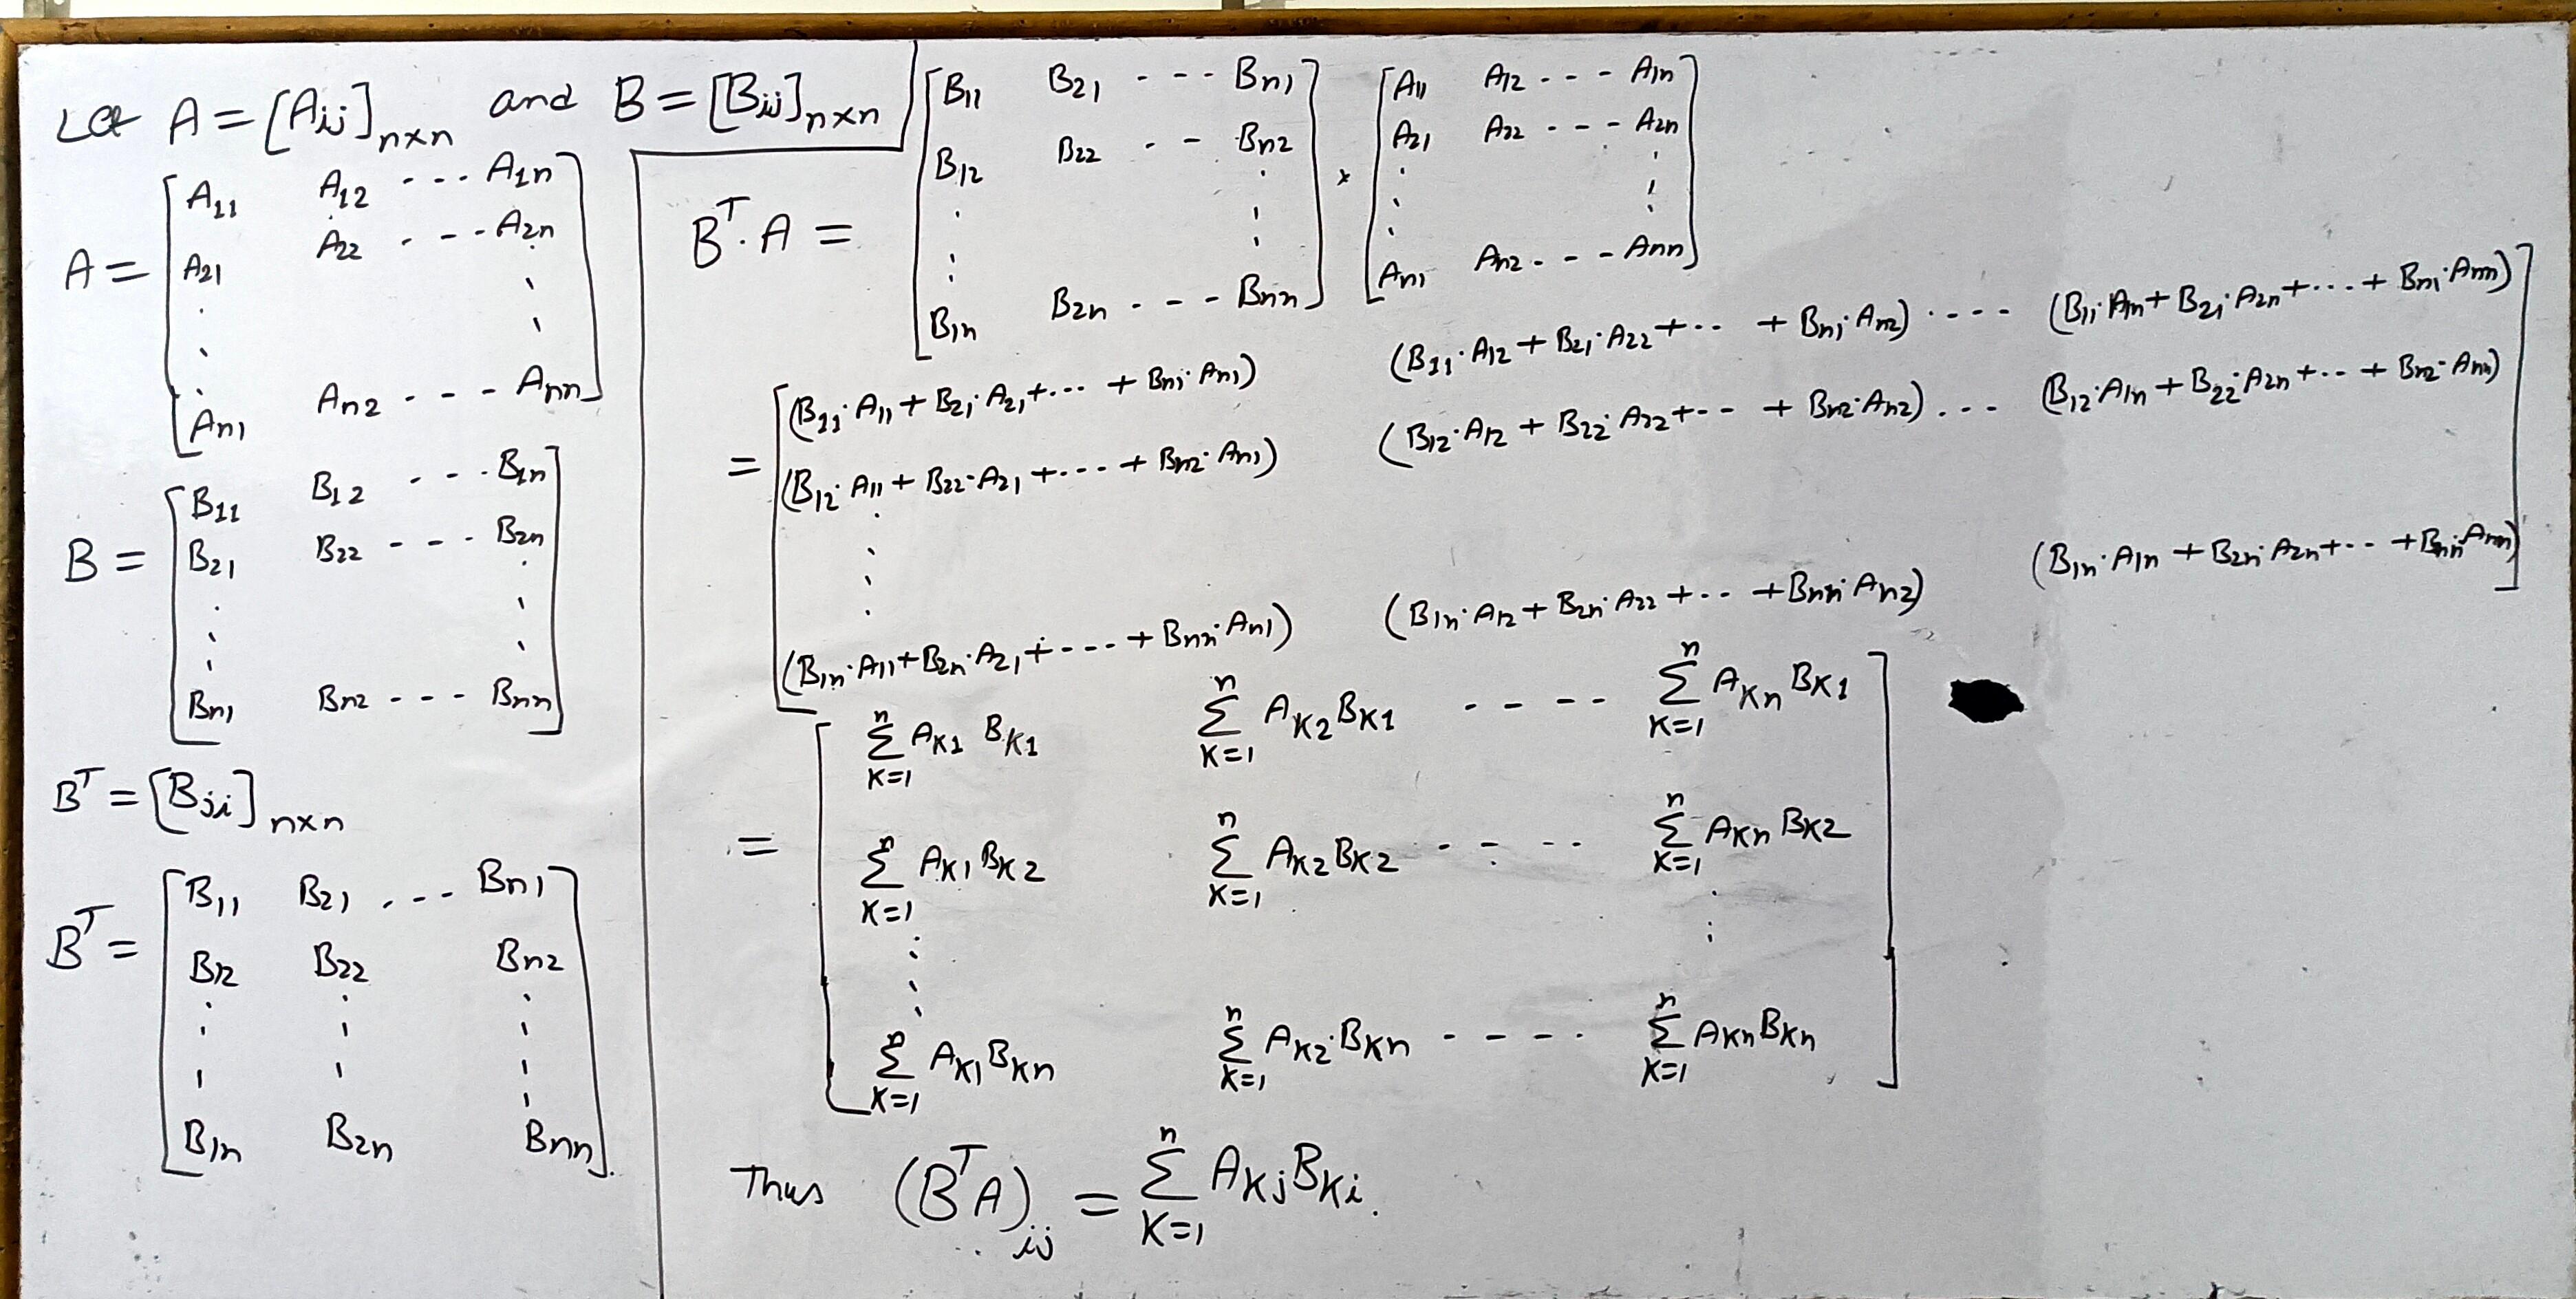 Let A = [Aij]n×n and B = [Bij]n×n
A = [A11 A12 --- A1n
A21 A22 ---- A2n
An1 An2 --- Ann]
B = [B11 B12 --- B1n
B21 B22 --- B2n
Bn1 Bn2 --- Bnn]
B^T = [Bji]n×n
B^T = [B11 B21 ... Bn1
B12 B22 Bn2
B1n B2n Bnn]
B^T.A = [B11 B21 --- Bn1
B12 B22 -- Bn2
B1n B2n --- Bnn] × [A11 A12 --- A1n
A21 A22 --- A2n
An1 An2 --- Ann]
= [(B11·A11 + B21·A21+... + Bn1·An1) (B11·A12 + B21·A22+.. + Bn1·An2) ---- (B11·A1n + B21·A2n+... + Bn1·Ann)
(B12·A11 + B22·A21 +---- + Bn2·An1) (B12·A12 + B22·A22+-- + Bn2·An2)... (B12·A1n + B22·A2n+.. + Bn2·Ann)
(B1n·A11+B2n·A21+---- + Bnn·An1) (B1n·A12 + B2n·A22 +-- +Bnn·An2) (B1n·A1n + B2n·A2n+-- +Bnn·Ann)]
= [∑_{K=1}^{n} AK1 BK1 ∑_{K=1}^{n} AK2BK1 ---- ∑_{K=1}^{n} AKn BK1
∑_{K=1}^{n} AK1 BK2 ∑_{K=1}^{n} AK2BK2 ---- ∑_{K=1}^{n} AKn BK2
∑_{K=1}^{n} AK1 BKn ∑_{K=1}^{n} AK2·BKn ---- ∑_{K=1}^{n} AKn BKn]
Thus (B^T A)ij = ∑_{K=1}^{n} AKj BKi.